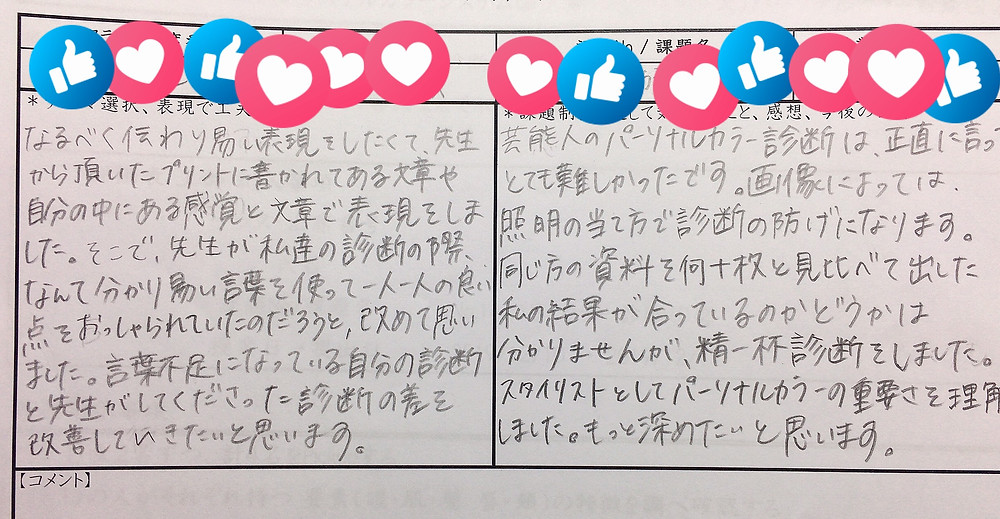 *
選択、表現で工夫
なるべく伝わり易い表現をしたくて、先生
から頂いたプリントに書かれてある文章や
自分の中にある感覚と文章で表現をしま
した。そこで、先生が私達の診断の際、
なんて分かり易い言葉を使って一人一人の良い
点をおっしゃられていたのだろうと、改めて思い
ました。言葉不足になっている自分の診断
と先生がしてくださった診断の差を
改善していきたいと思います。
/ 課題名
*課題制
と、感想、今後の
芸能人のパーソナルカラー診断は、正直に言っ
とても難しかったです。画像によっては、
照明の当て方で診断の防げになります。
同じ方の資料を何十枚と見比べて出した
私の結果が合っているのかどうかは
分かりませんが、精一杯診断をしました。
スタイリストとしてパーソナルカラーの重要さを理解
しました。もっと深めたいと思います。
【コメント】